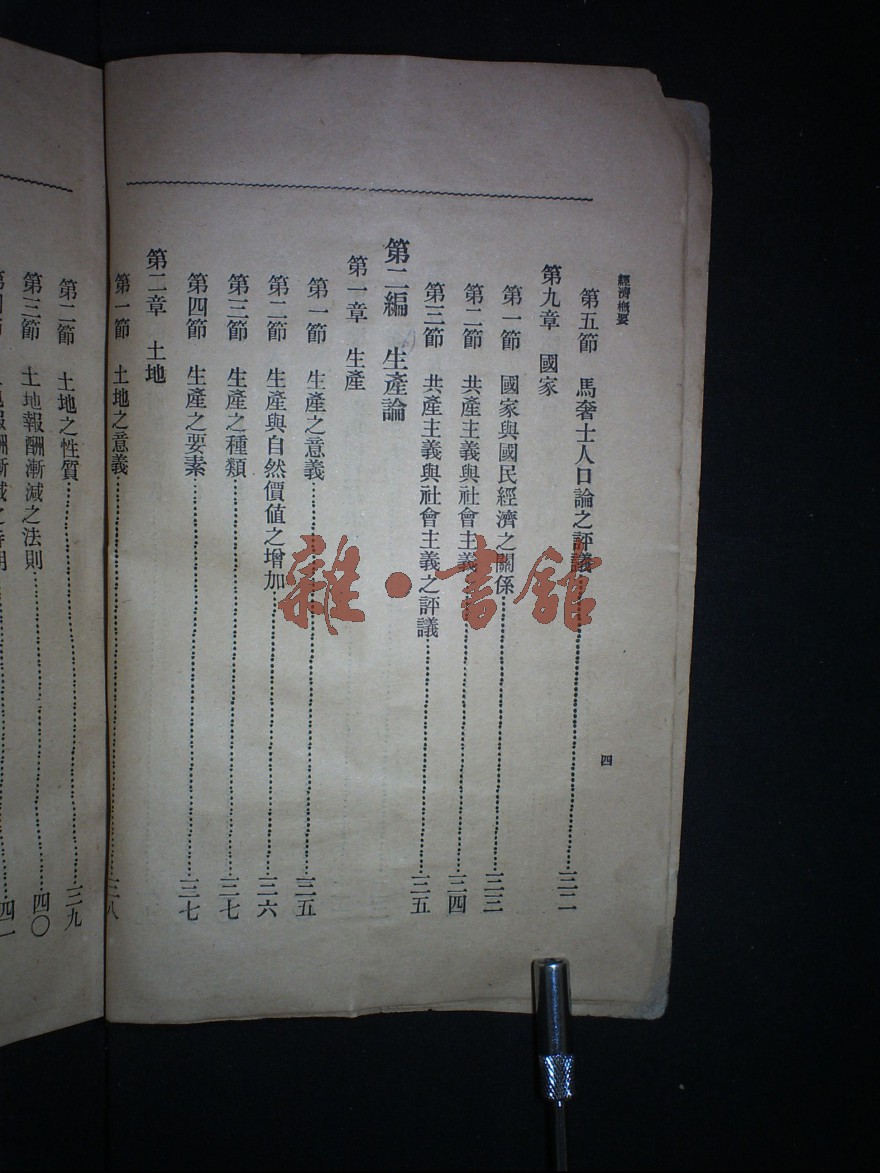 經濟概要
四
第五節 馬奢士人口論之評議……三二
第九章 國家
第一節 國家與國民經濟之關係……三三
第二節 共產主義與社會主義……三四
第三節 共產主義與社會主義之評議……三五
第二編 生產論
第一章 生產
第一節 生產之意義……三五
第二節 生產與自然價值之增加……三六
第三節 生產之種類……三七
第四節 生產之要素……三七
第二章 土地
第一節 土地之意義……三八
第二節 土地之性質……三九
第三節 土地報酬漸減之法則……四〇
雜·書館